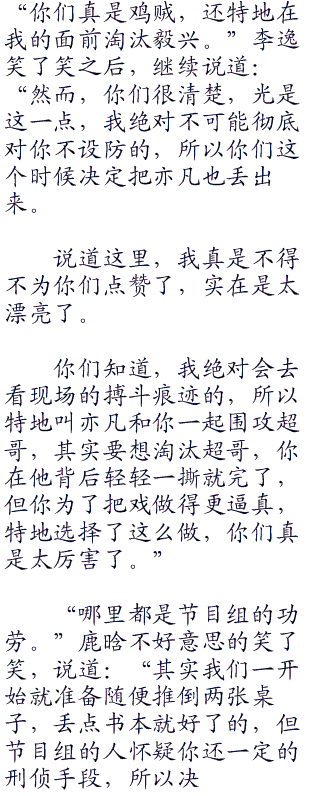 “你们真是鸡贼，还特地在
我的面前淘汰毅兴。”李逸
笑了笑之后，继续说道：
“然而，你们很清楚，光是
这一点，我绝对不可能彻底
对你不设防的，所以你们这
个时候决定把亦凡也丢出
来。
说道这里，我真是不得
不为你们点赞了，实在是太
漂亮了。
你们知道，我绝对会去
看现场的搏斗痕迹的，所以
特地叫亦凡和你一起围攻超
哥，其实要想淘汰超哥，你
在他背后轻轻一撕就完了，
但你为了把戏做得更逼真，
特地选择了这么做，你们真
是太厉害了。”
“哪里都是节目组的功
劳。”鹿晗不好意思的笑了
笑，说道：“其实我们一开
始就准备随便推倒两张桌
子，丢点书本就好了的，但
节目组的人怀疑你还一定的
刑侦手段，所以决